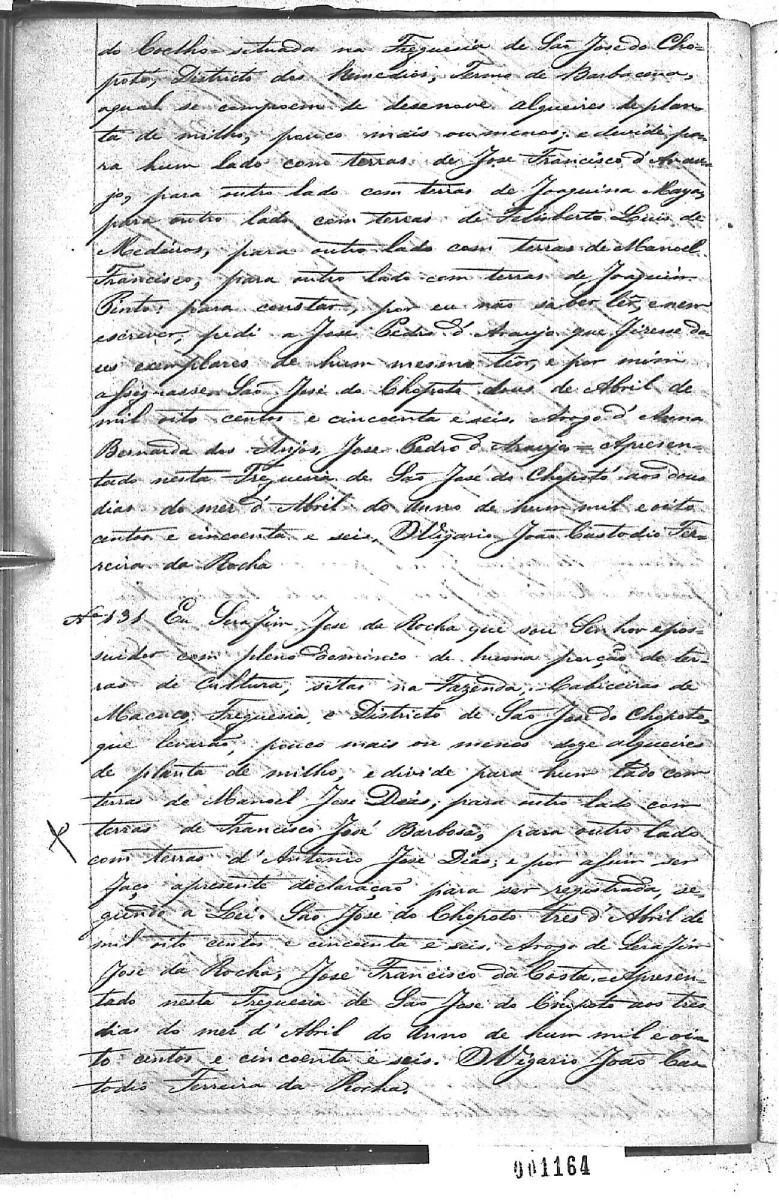 do Coelho situada na Freguesia de São José do Cho-
poto, Districto dos Remedios, Termo de Barbacena,
aqual se compoem de desenove alqueires de plan-
ta de milho, pouco mais ou menos; e devide pa-
ra hum lado com terras de Jose Francisco d'Arau-
jo, para outro lado com terras de Joaquina Maya,
para outro lado com terras de Felisberto Luis de
Medeiros, para outro lado com terras de Manoel
Francisco, para outro lado com terras de Joaquim
Pinto; para constar, por eu não saber ler, e nem
escrever, pedi a Jose Pedro d'Araujo que fizesse do
us exemplares de hum mesmo têor, e por mim
assignasse. São José do Chopoto dous de Abril de
mil oito centos e cincoenta e seis. Arogo d'Anna
Bernarda dos Anjos, Jose Pedro d'Araujo = Apresen-
tado nesta Freguesia de São José do Chopotó aos dous
dias do mez d'Abril do Anno de hum mil e oito
centos e cincoenta e seis. O Vigario João Custodio Fer-
reira da Rocha
Nº 131 Eu Serafim Jose da Rocha que sou Senhor e pos-
suidor com pleno dominio de huma porção de ter-
ras de Cultura, sitas na Fazenda, Cabiceiras de
Macuco, Freguesia, e Districto de São Jose do Chopoto,
que levarão, pouco mais ou menos doze alqueires
de planta de milho, e divide para hum lado com
terras de Manoel Jose Dias, para outro lado com
terras de Francisco José Barbosa, para outro lado
com terras d'Antonio Jose Dias; e por assim ser
faço apresente declaração para ser registrada, se-
gundo a Lei. São Jose do Chopoto tres d'Abril de
mil oito centos e cincoenta e seis. Arogo de Serafim
Jose da Rocha, Jose Francisco da Costa. Apresen-
tado nesta Freguesia de São Jose do Chopoto aos tres
dias do mez d'Abril do Anno de hum mil e oi-
to centos e cincoenta e seis. O Vigario João Cus-
todio Ferreira da Rocha.
001164